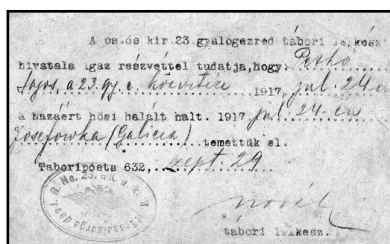 A cs.és kir.23.gyalogezred tábori lelkész
hivatala igaz részvettel tudatja,hogy: Petkó
Lajos, a 23.gy.e. 1917 jul. 24-én
a hazáért hősi halált halt. 1917 jul. 24-én
Józefowka (Galicia) temettük el.
Taboriposta 632, szept. 29
Novák
tábori lelkész.